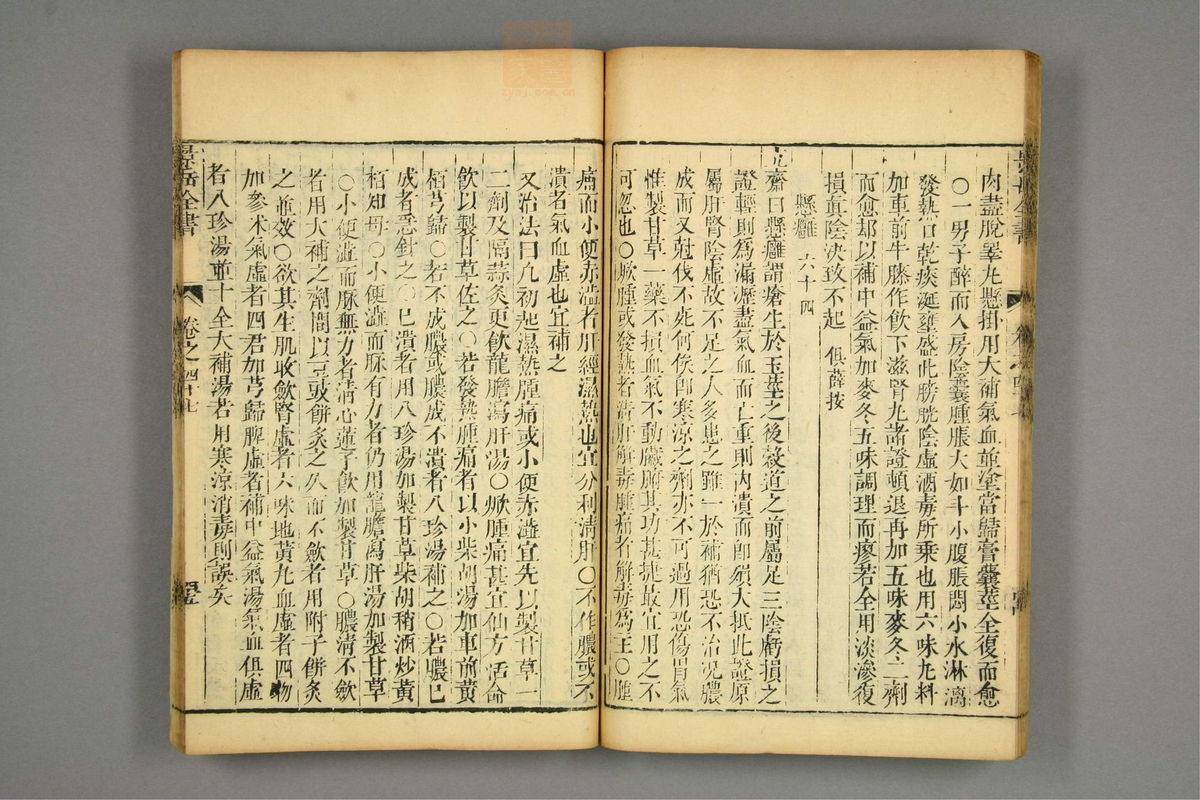 肉盡脫睪丸懸掛用大補氣血並塗當歸膏囊莖全復而愈
○一男子醉而入房陰囊腫脹大如斗小腹脹悶小水淋漓
發熱口乾痰涎壅盛此膀胱陰虛酒毒所乘也用六味丸料
加車前牛膝作飲下滋腎丸諸證頓退再加五味麥冬二劑
而愈却以補中益氣加麥冬五味調理而痊若全用淡滲復
損真陰決致不起 俱薛按
懸癰 六十四
立齋曰懸癰謂瘡生於玉莖之後穀道之前屬足三陰虧損之
證輕則為漏瀝盡氣血而亡重則內潰而即殞大抵此證原
屬肝腎陰虛故不足之人多患之雖一於補猶恐不治況膿
成而又尅伐不死何俟即寒涼之劑亦不可過用恐傷胃氣
惟製甘草一藥不損血氣不動臟腑其功甚捷最宜用之不
可忽也○焮腫或發熱者清肝解毒腫痛者解毒為主○腫
痛而小便赤澁者肝經濕熱也宜分利清肝○不作膿或不
潰者氣血虛也宜補之
又治法曰凡初起濕熱腫痛或小便赤澁宜先以製甘草一
二劑及隔蒜灸更飲龍膽瀉肝湯○焮腫痛甚宜仙方活命
飲以製甘草佐之○若發熱腫痛者以小柴胡湯加車前黃
栢芎歸○若不成膿或膿成不潰者八珍湯補之○若膿已
成者急針之○已潰者用八珍湯加製甘草柴胡稍酒炒黃
栢知母○小便澁而脈有力者仍用龍膽瀉肝湯加製甘草
○小便澁而脈無力者清心蓮子飲加製甘草○膿清不歛
者用大補之劑間以豆豉餅灸之久而不歛者用附子餅灸
之並效○欲其生肌收歛腎虛者六味地黃丸血虛者四物
加參术氣虛者四君加芎歸脾虛者補中益氣湯氣血俱虛
者八珍湯並十全大補湯若用寒涼消毒則誤矣
景岳全書
卷之四十七